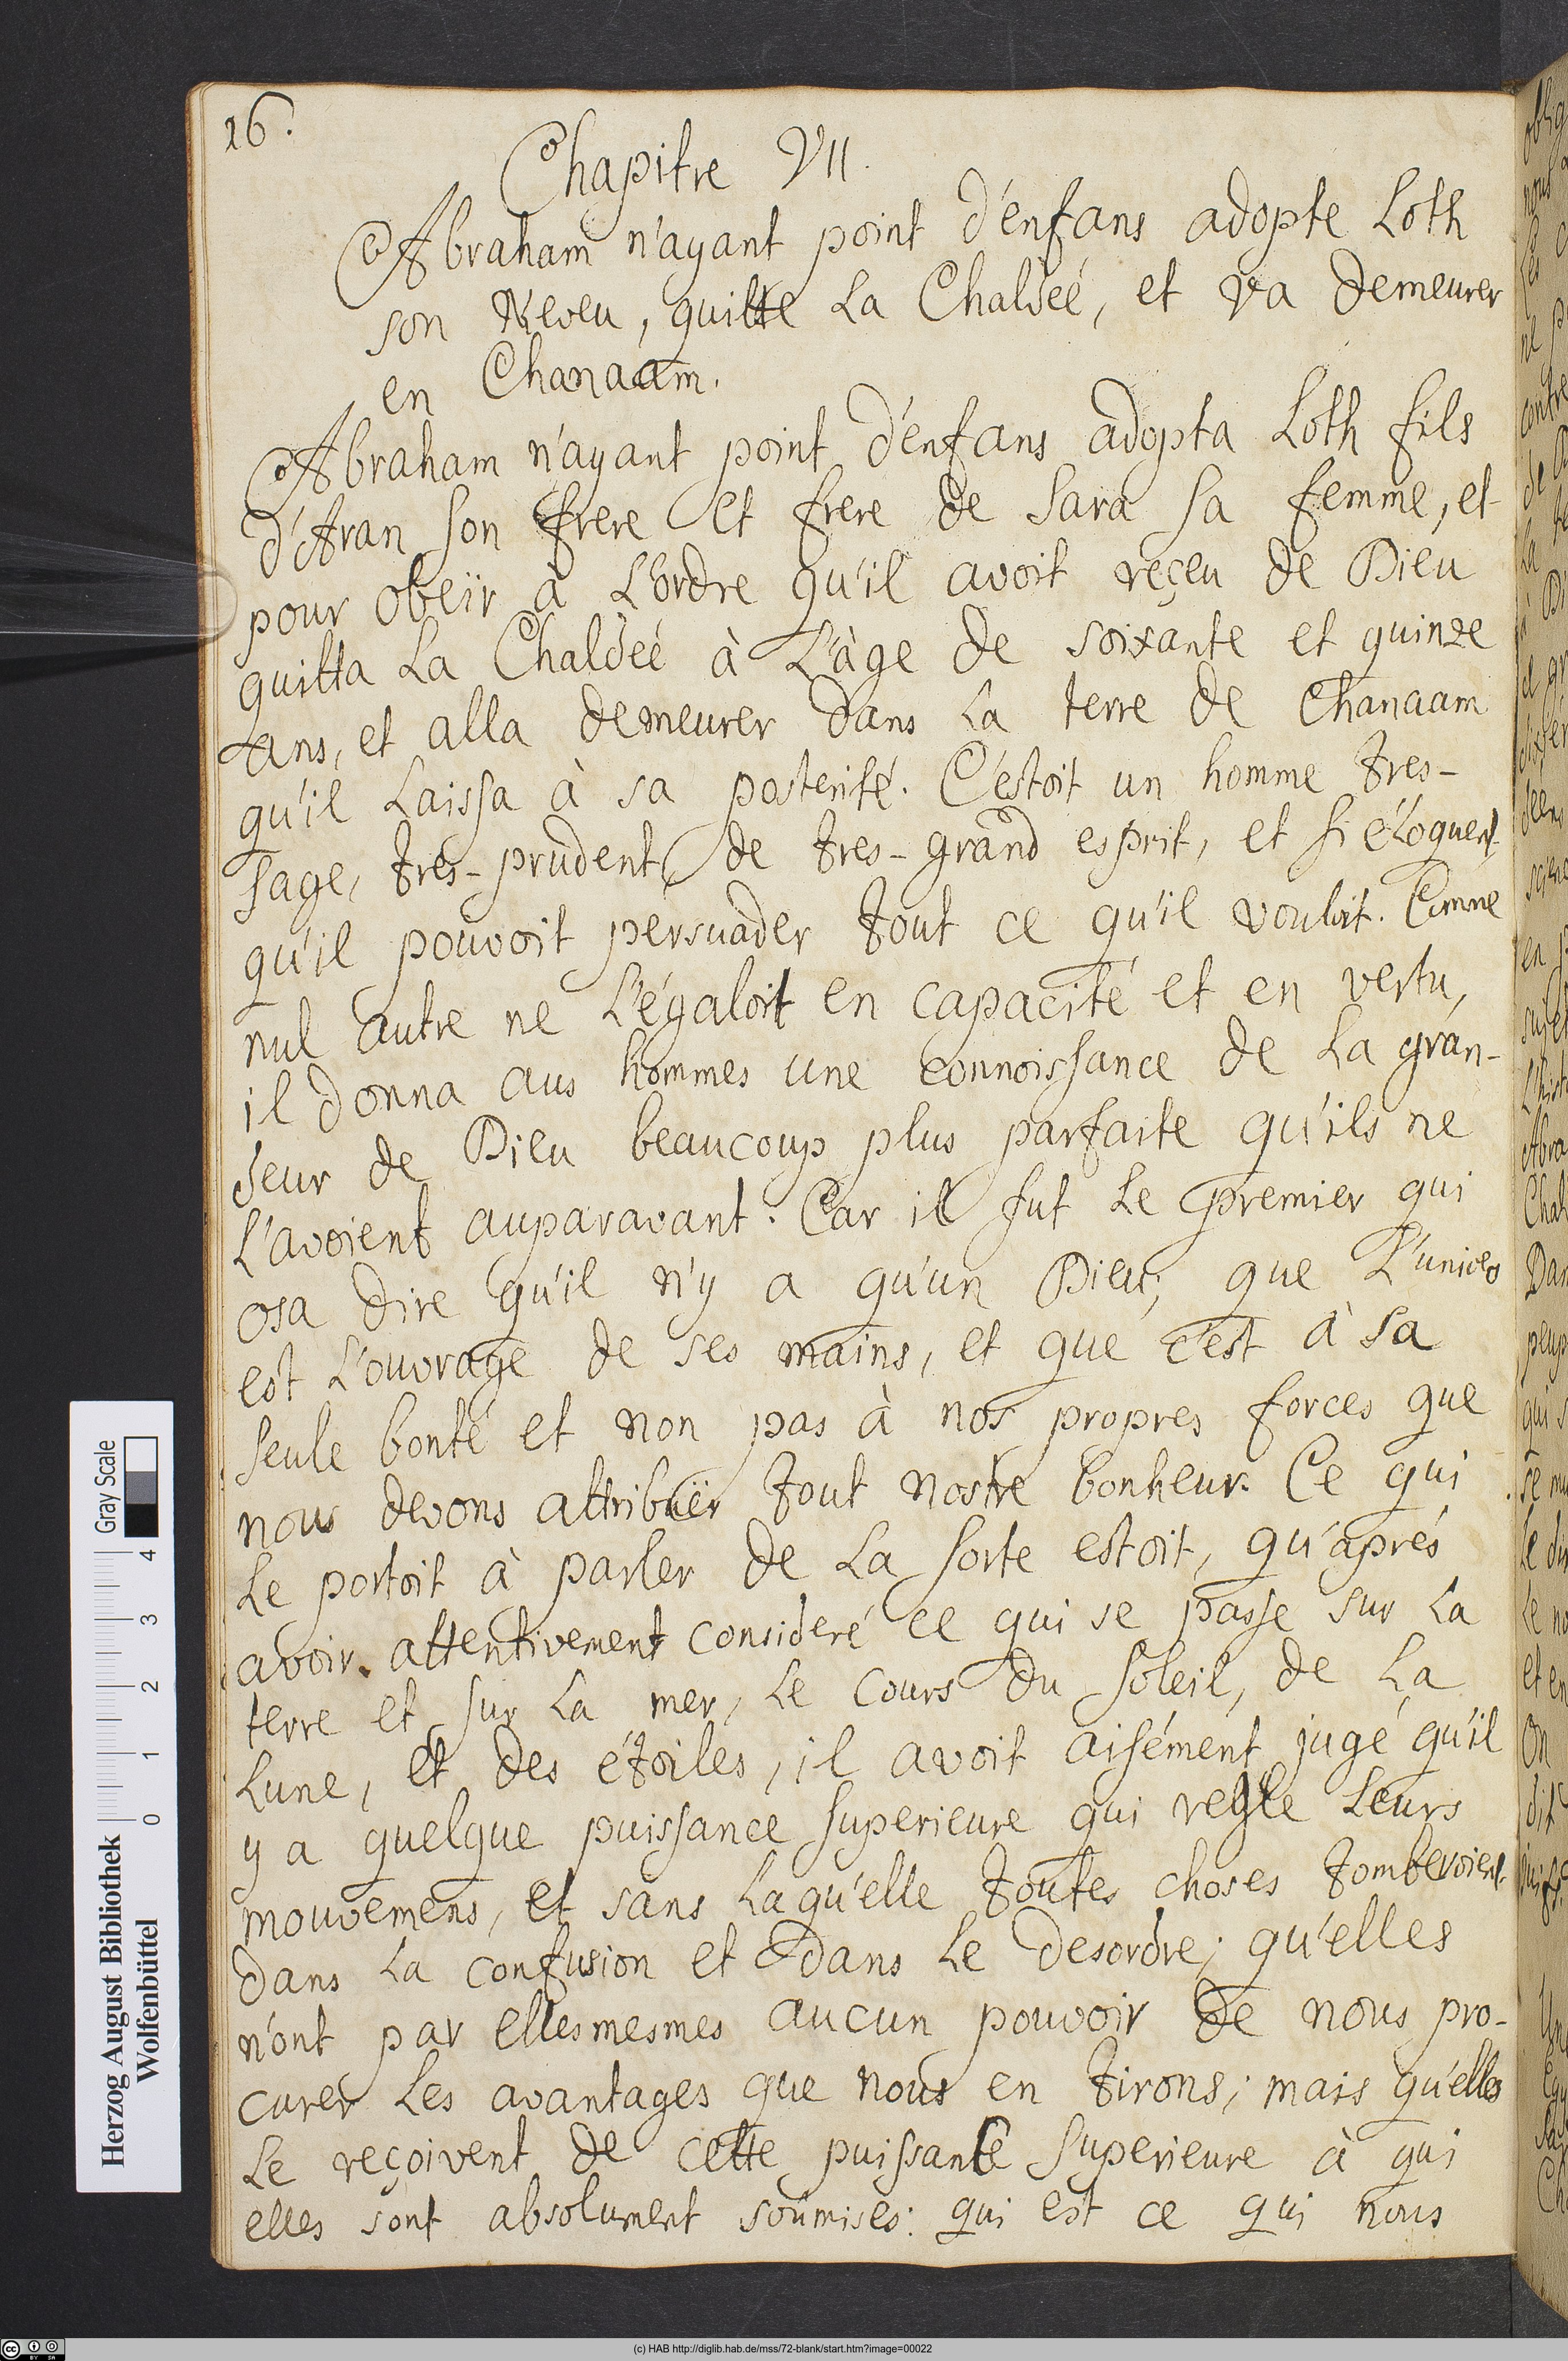 16.
Chapitre VII.
Abraham n'ayant point d'enfans adopte Loth
son Neveu, quitte La Chaldeé, et va demeurer
en Chanaam.
Abraham n'ayant point d'enfans adopta Loth fils
d'Aran son frere et frere de Sara sa femme, et
pour obeïr à L'ordre qu'il avoit reçeu de Dieu
quitta La Chaldeé à L'àge de soixante et quinze
ans, et alla demeurer dans La terre de Chanaam
qu'il Laissa à sa posterité. C'estoit un homme tres-
sage, tres-prudent, de tres-grand esprit, et si éloquent
qu'il pouvoit persuader tout ce qu'il vouloit. Comme
nul autre ne L'égaloit en capacité et en vertu,
il donna aus hommes une connoissance de La gran-
deur de Dieu beaucoup plus parfaite qu'ils ne
L'avoient auparavant. Car il fut Le premier qui
osa dire qu'il n'y a qu'un Dieu; que L'univers
est L'ouvrage de ses mains, et que c'est à sa
seule bonté et non pas à nos propres forces que
nous devons attribuër tout nostre bonheur. Ce qui
Le portoit à parler de La sorte estoit, qu'aprés
avoir attentivement consideré ce qui se passe sur La
terre et sur La mer, Le cours du Soleil, de La
Lune, et des étoiles, il avoit aisément jugé qu'il
y a quelque puissance superieure qui regle Leurs
mouvemens, et sans Laqu'elle toutes choses tomberoient
dans La confusion et dans Le desordre; qu'elles
n'ont par ellesmesmes aucun pouvoir de nous pro-
curer Les avantages que nous en tirons; mais qu'elles
Le reçoivent de cette puissance superieure à qui
elles sont absolument soûmises: qui est ce qui nous
Gray Scale
0 1 2 3 4
Herzog August Bibliothek
Wolfenbüttel
(c) HAB http://diglib.hab.de/mss/72-blank/start.htm?image=00022